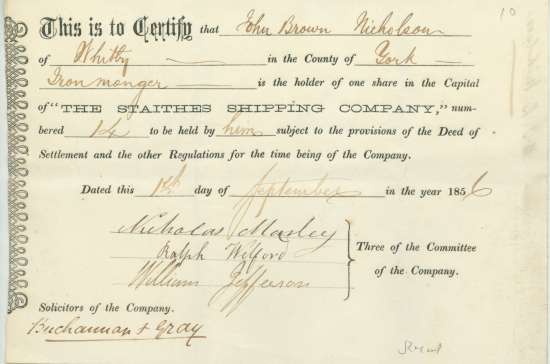 10
This is to Certify that John Brown Nicholson
of Whitby in the County of York
Ironmonger is the holder of one share in the Capital
of "THE STAITHES SHIPPING COMPANY," num-
bered 14 to be held by him subject to the provisions of the Deed of
Settlement and the other Regulations for the time being of the Company.
Dated this day of September in the year 1856
Nicholas
Ralph Wilford
William Jefferson
Three of the Committee
of the Company.
Solicitors of the Company.
Buchannan & Gray